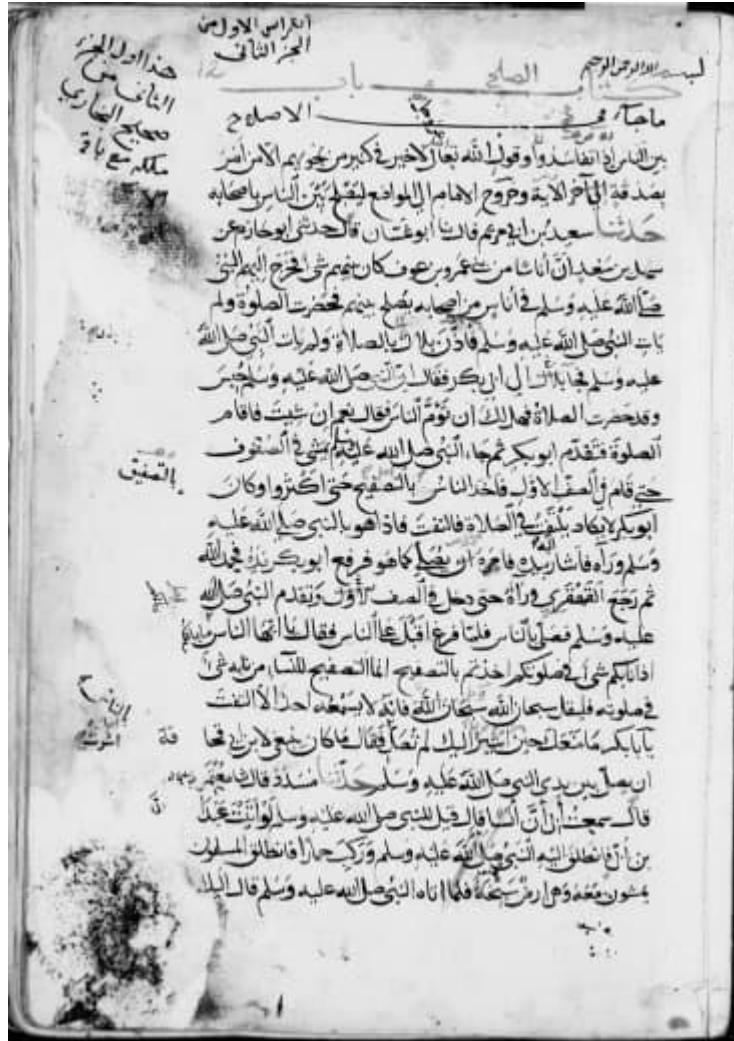 الكراس الاول من
الجزء الثاني
هذا اول الجزء
الثاني من
صحيح البخاري
بسم الله الرحمن الرحيم
كتاب الصلح باب
ماجاء في الاصلاح
بين الناس اذا تفاسدوا وقول الله تعالى لا خير في كثير من نجويهم الا من امر
بصدقة الى آخر الاية وخروج الامام الى المواضع ليصلح بين الناس باصحابه
حدثنا سعيد بن ابي مريم قال ثنا ابو غسان قال حدثني ابو حازم عن
سهل بن سعد ان اناسا من بني عمرو بن عوف كان بينهم شئ فخرج اليهم النبي
صلى الله عليه وسلم في اناس من اصحابه يصلح بينهم فحضرت الصلوة ولم
يات النبي صلى الله عليه وسلم فاذن بلال بالصلاة ولم يات النبي صلى الله
عليه وسلم فجا بلال الى ابي بكر فقال ان النبي صلى الله عليه وسلم حبس
وقد حضرت الصلاة فهل لك ان تؤم الناس فقال نعم ان شيت فاقام
الصلوة فتقدم ابو بكر ثم جاء النبي صلى الله عليه وسلم يمشي في الصفوف
حتى قام في الصف الاول فاخذ الناس بالتصفيح حتى اكثروا وكان
بالتصفيق
ابو بكر لا يكاد يلتفت في الصلاة فالتفت فاذا هو بالنبي صلى الله عليه
وسلم وراه فاشار بيده فامره ان يصلي كما هو فرفع ابو بكر يده فحمد الله
ثم رجع القهقري وراه حتى دخل في الصف الاول وتقدم النبي صلى الله
عليه وسلم فصلى بالناس فلما فرغ اقبل على الناس فقال يا ايها الناس
اذا نابكم شئ في صلوتكم اخذتم بالتصفيح انما التصفيح للنساء من نابه شئ
في صلوته فليقل سبحان الله سبحان الله فانه لا يسمعه احد الا التفت
يا با بكر ما منعك حين اشير اليك لم تصل فقال ما كان ينبغي لابن ابي قحا
فة
ان يصلي بين يدي النبي صلى الله عليه وسلم حدثنا مسدد قال ثنا معتمر
قال سمعت ابي ان انسا قال قيل للنبي صلى الله عليه وسلم لو اتيت عبد ا
لله
بن ابي فانطلق اليه النبي صلى الله عليه وسلم وركب حمارا فانطلق المسلمون
يمشون معه وهي ارض سبخة فلما اتاه النبي صلى الله عليه وسلم قال اليك